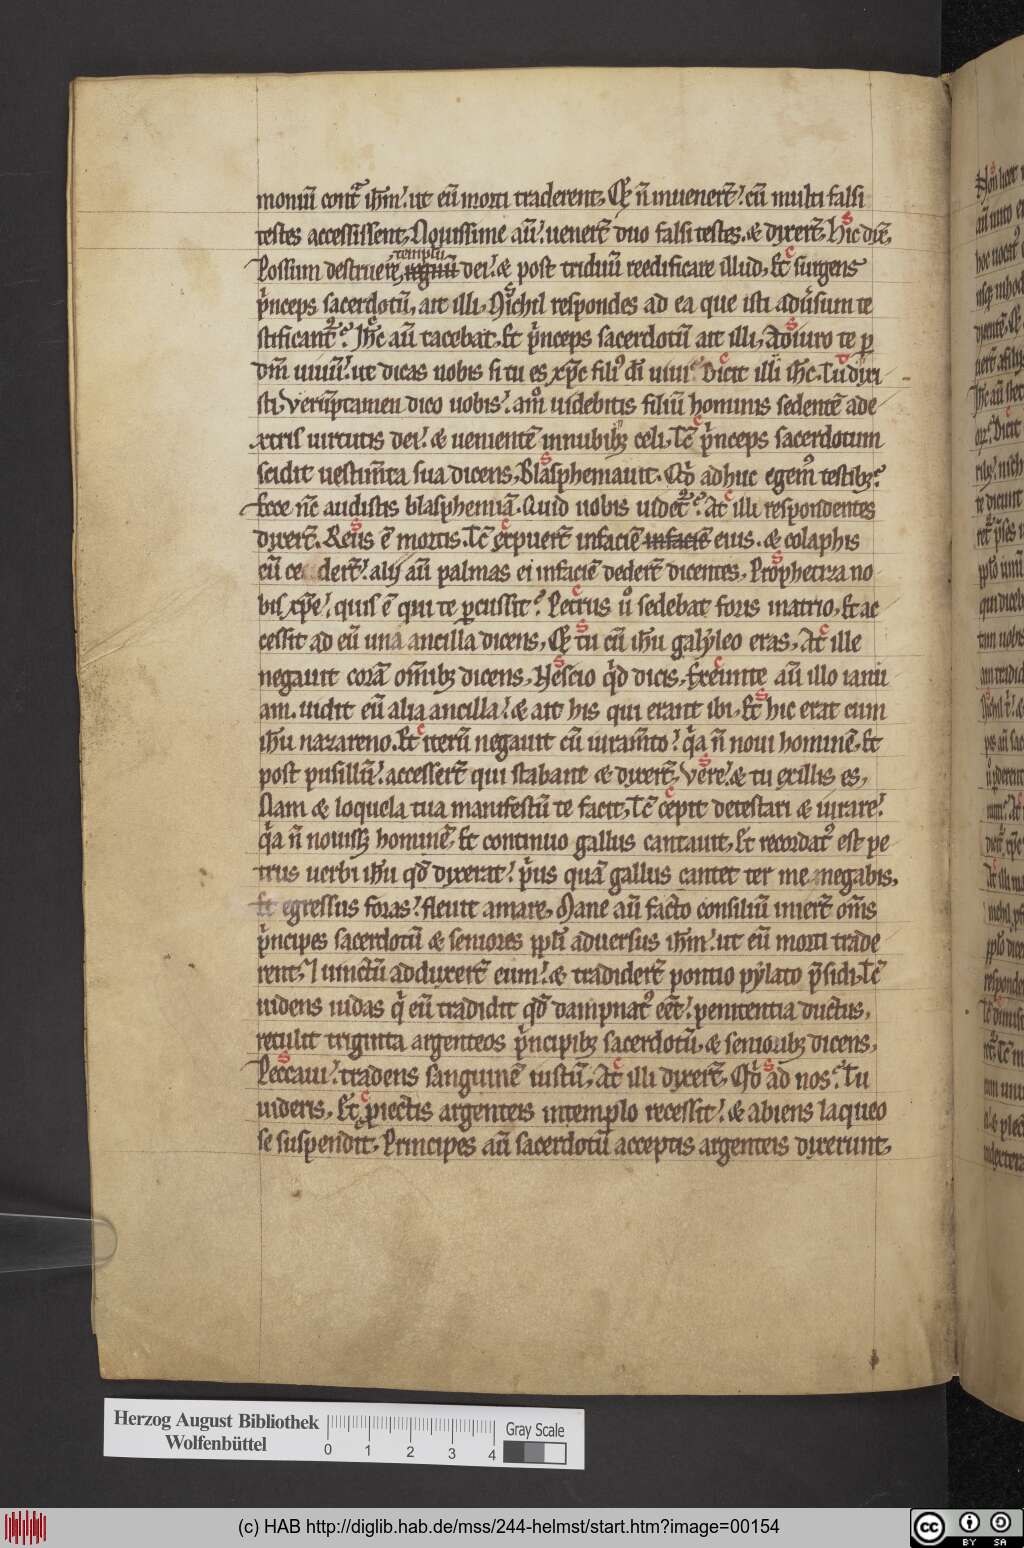 moniũ contͣ ihm̄. ut eũ morti traderent, Et ñ inuenerт̃. cũ multi falsi
testes accessissent, Nouissime aũ. uenerт̃ duo falsi testes. & dixerт̃, Hic dix̃,
templũ
Possum destruere, regnũ dei. & post triduũ reedificare illud, Et surgens
p̍nceps sacerdotũ, ait illi, Nichil respondes ad ea que isti adũsum te
stificantᷣ? Ihc̄ aũ tacebat, Et p̍nceps sacerdotũ ait illi, Adiuro te ꝑ
dm̄ uiuũ. ut dicas nobis si tu es xp̄c filiꝰ di uiui? Dicit illi ihc̄. Tu dixi
sti, Verũptamen dico uobis. amͦ uidebitis filiũ hominis sedentē ade
xtris uirtutis dei. & uenientē innubibꝫ celi, Tc̄ p̍nceps sacerdotum
scidit uestim̄ta sua dicens, Blasphemauit. Qͥd adhuc egemꝰ testibꝫ?
Ecce nc̄ audistis blasphemiā. Quid uobis uidetᷣ? At illi respondentes
dixerт̃. Reus ē mortis. Tc̄ expuerт̃ infaciē infaciē eius. & colaphis
eũ ce derт̃. alij aũ palmas ei infaciē dederт̃ dicentes, Prophetiza no
bis xp̄e. quis ē qui te ꝑcussit? Petrus uͦ sedebat foris inatrio, Et ac
cessit ad eũ una ancilla dicens, Et tu cũ ihu galyleo eras, At ille
negauit corā om̄ibꝫ dicens, Nescio qͥd dicis, Exeunte aũ illo ianu
am. uidit eũ alia ancilla. & ait his qui erant ibi, Et hic erat cum
ihu nazareno. Et iterũ negauit cũ iuram̄to. qͥa ñ noui hominē, Et
post pusillũ. accesserт̃ qui stabant & dixerт̃, Vere. & tu exillis es,
Nam & loquela tua manifestũ te facit, Tc̄ cepit detestari & iurare.
qͥa ñ nouissꝫ hominē, Et continuo gallus cantauit, Et recordatꝰ est pe
trus uerbi ihu qd̄ dixerat. p̍us quā gallus cantet ter me negabis,
Et egressus foras. fleuit amare, Mane aũ facto consiliũ inierт̃ om̄s
p̍ncipes sacerdotũ & seniores ppli aduersus ihm̄. ut eũ morti trade
rent, ⁊ uinctũ adduxerт̃ eum. & tradiderт̃ pontio pylato p̄sidi, Tc̄
uidens iudas qͥ eũ tradidit qd̄ dampnatꝰ eēt. penitentia ductus,
retulit triginta argenteos p̍ncipibꝫ sacerdotũ, & senioribꝫ dicens,
Peccaui. tradens sanguinē iustũ, At illi dixerт̃, Qͥd ad nos? Tu
uideris, Et ꝓiectis argenteis intemplo recessit. & abiens laqueo
se suspendit, Principes aũ sacerdotũ acceptis argenteis dixerunt,
Herzog August Bibliothek
Wolfenbüttel
0 1 2 3 4
Gray Scale
(c) HAB http://diglib.hab.de/mss/244-helmst/start.htm?image=00154
cc BY SA